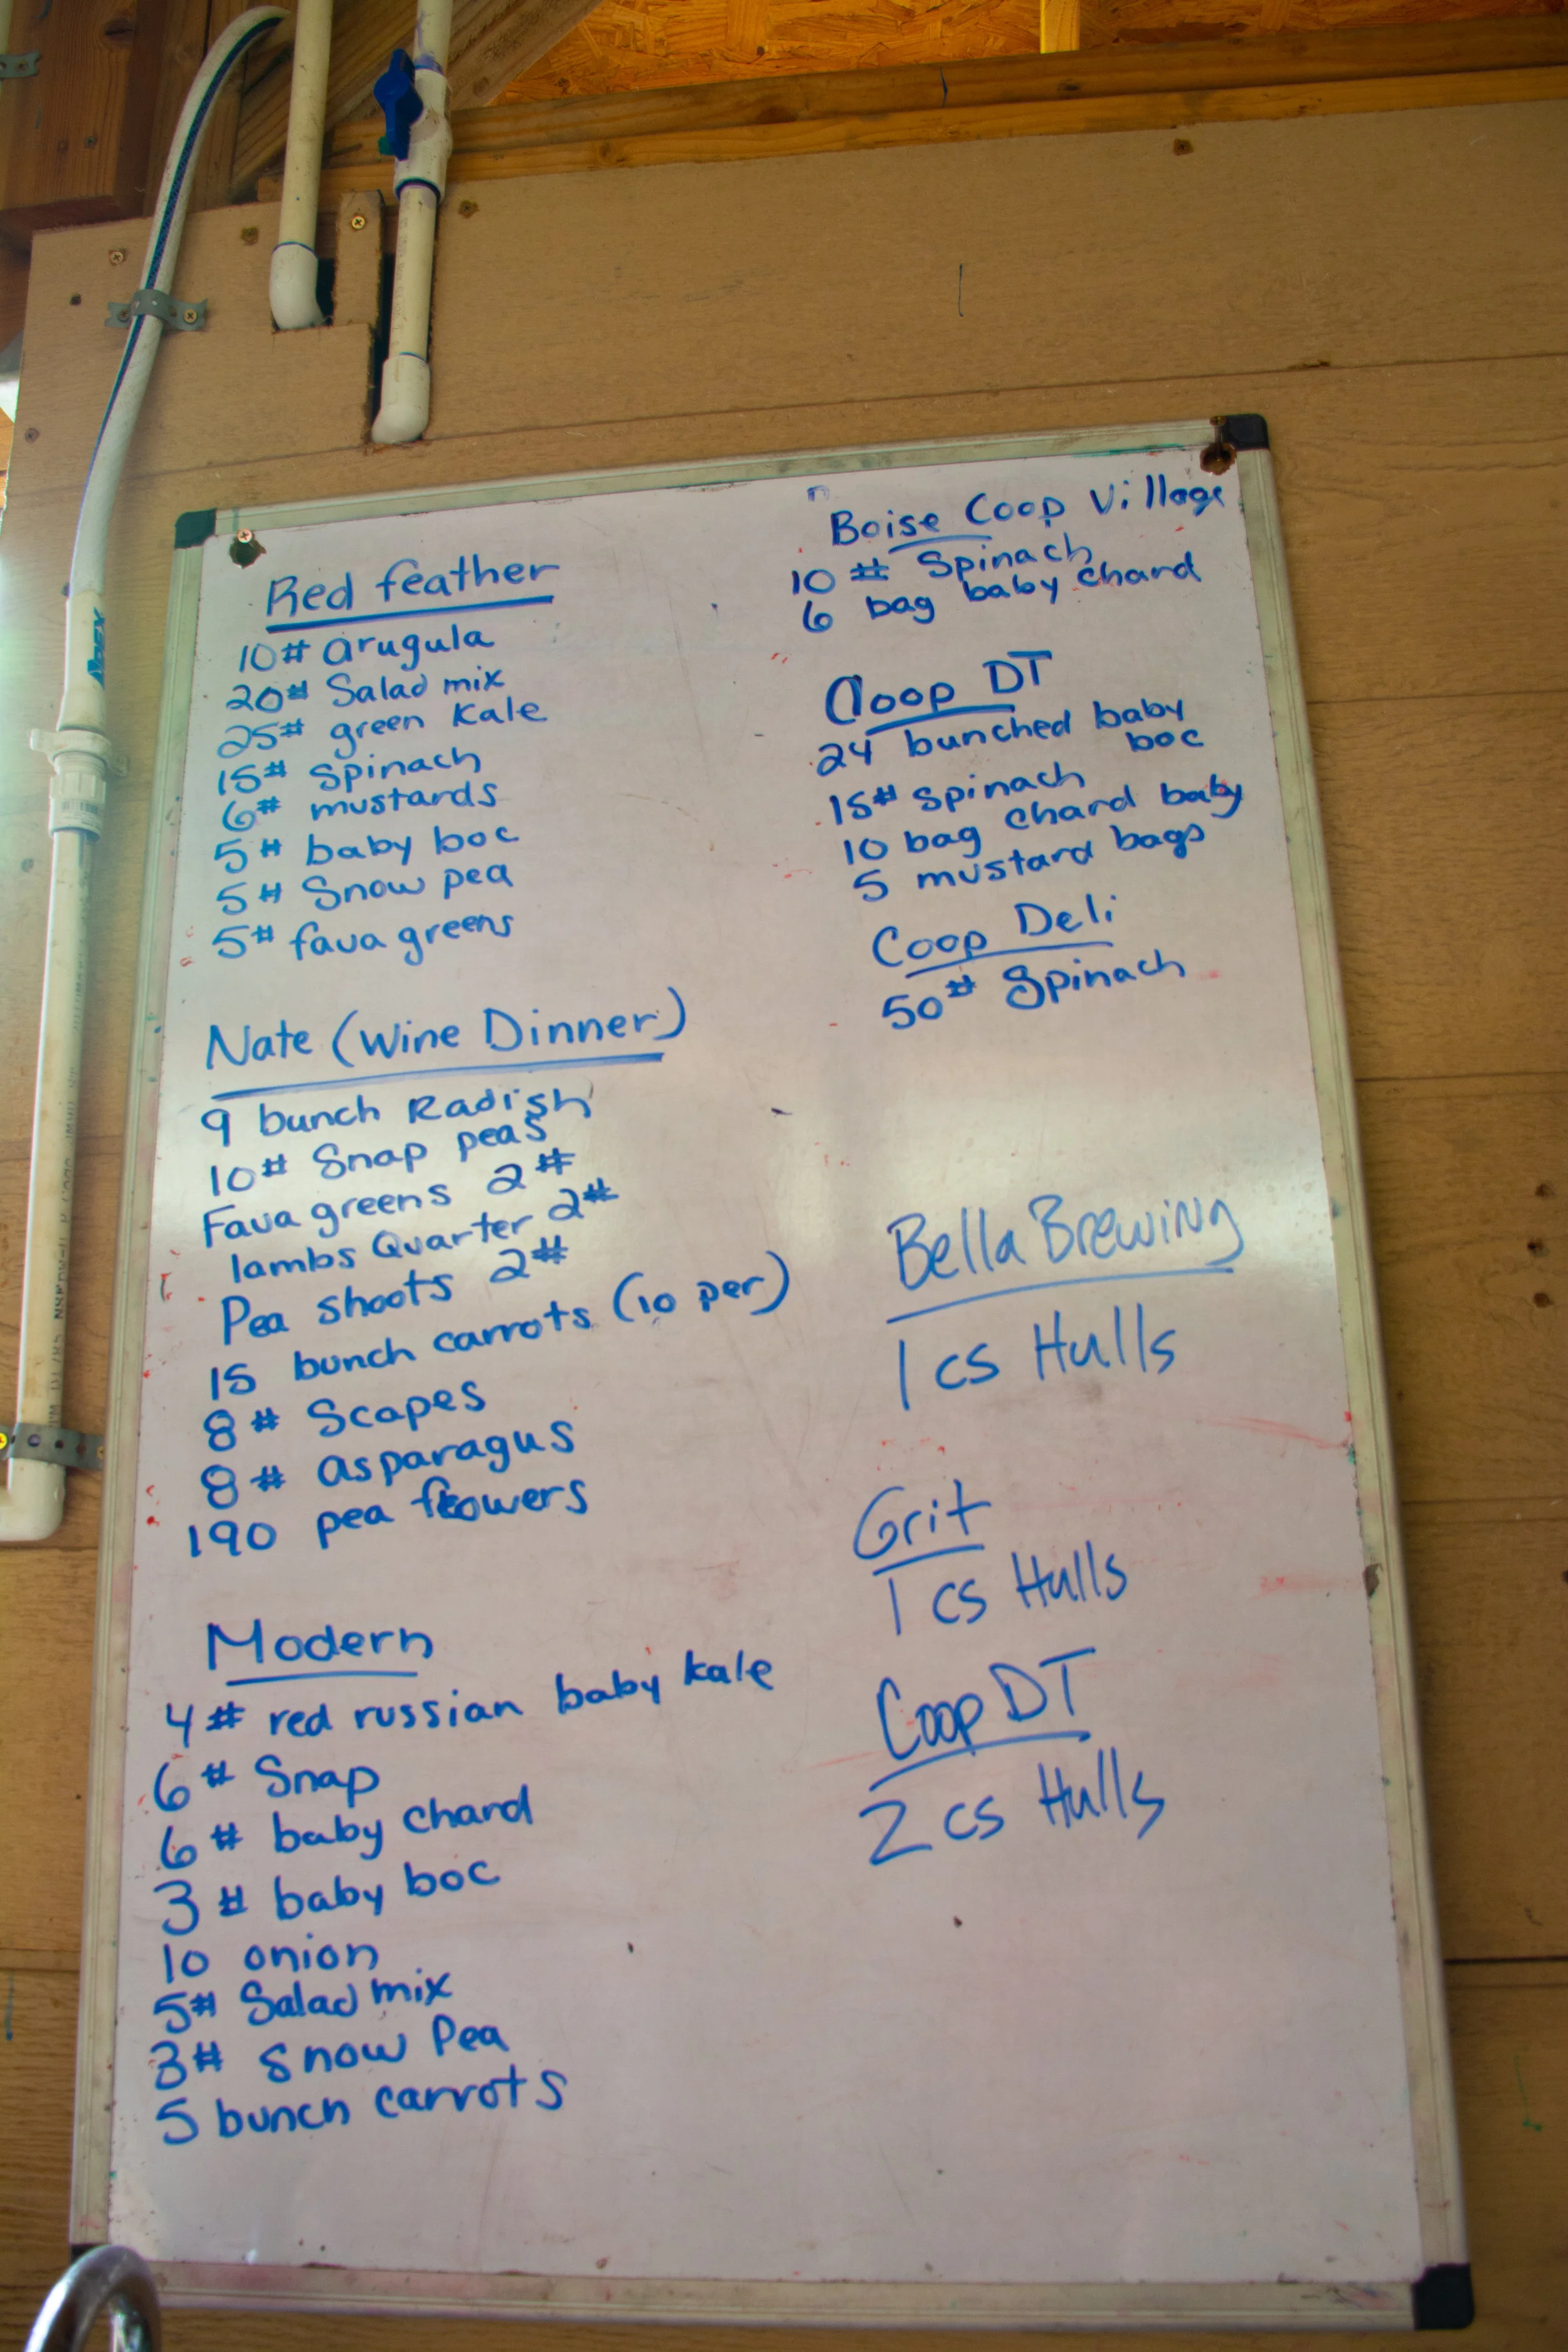 Red feather
10# arugula
20# Salad mix
25# green Kale
15# Spinach
6# mustards
5# baby boc
5# Snow pea
5# fava greens
Nate (Wine Dinner)
9 bunch Radish
10# Snap peas
Fava greens 2#
lambs Quarter 2#
Pea shoots 2#
15 bunch carrots (10 per)
8# Scapes
8# asparagus
190 pea flowers
Modern
4# red russian baby kale
6# Snap
6# baby chard
3# baby boc
10 onion
5# Salad mix
3# Snow Pea
5 bunch carrots
Boise Coop Village
10# Spinach
6 bag baby chard
Coop DT
24 bunched baby
boc
15# spinach
10 bag chard baby
5 mustard bags
Coop Deli
50# Spinach
Bella Brewing
1 cs Hulls
Grit
1 cs Hulls
Coop DT
2 cs Hulls
APEX